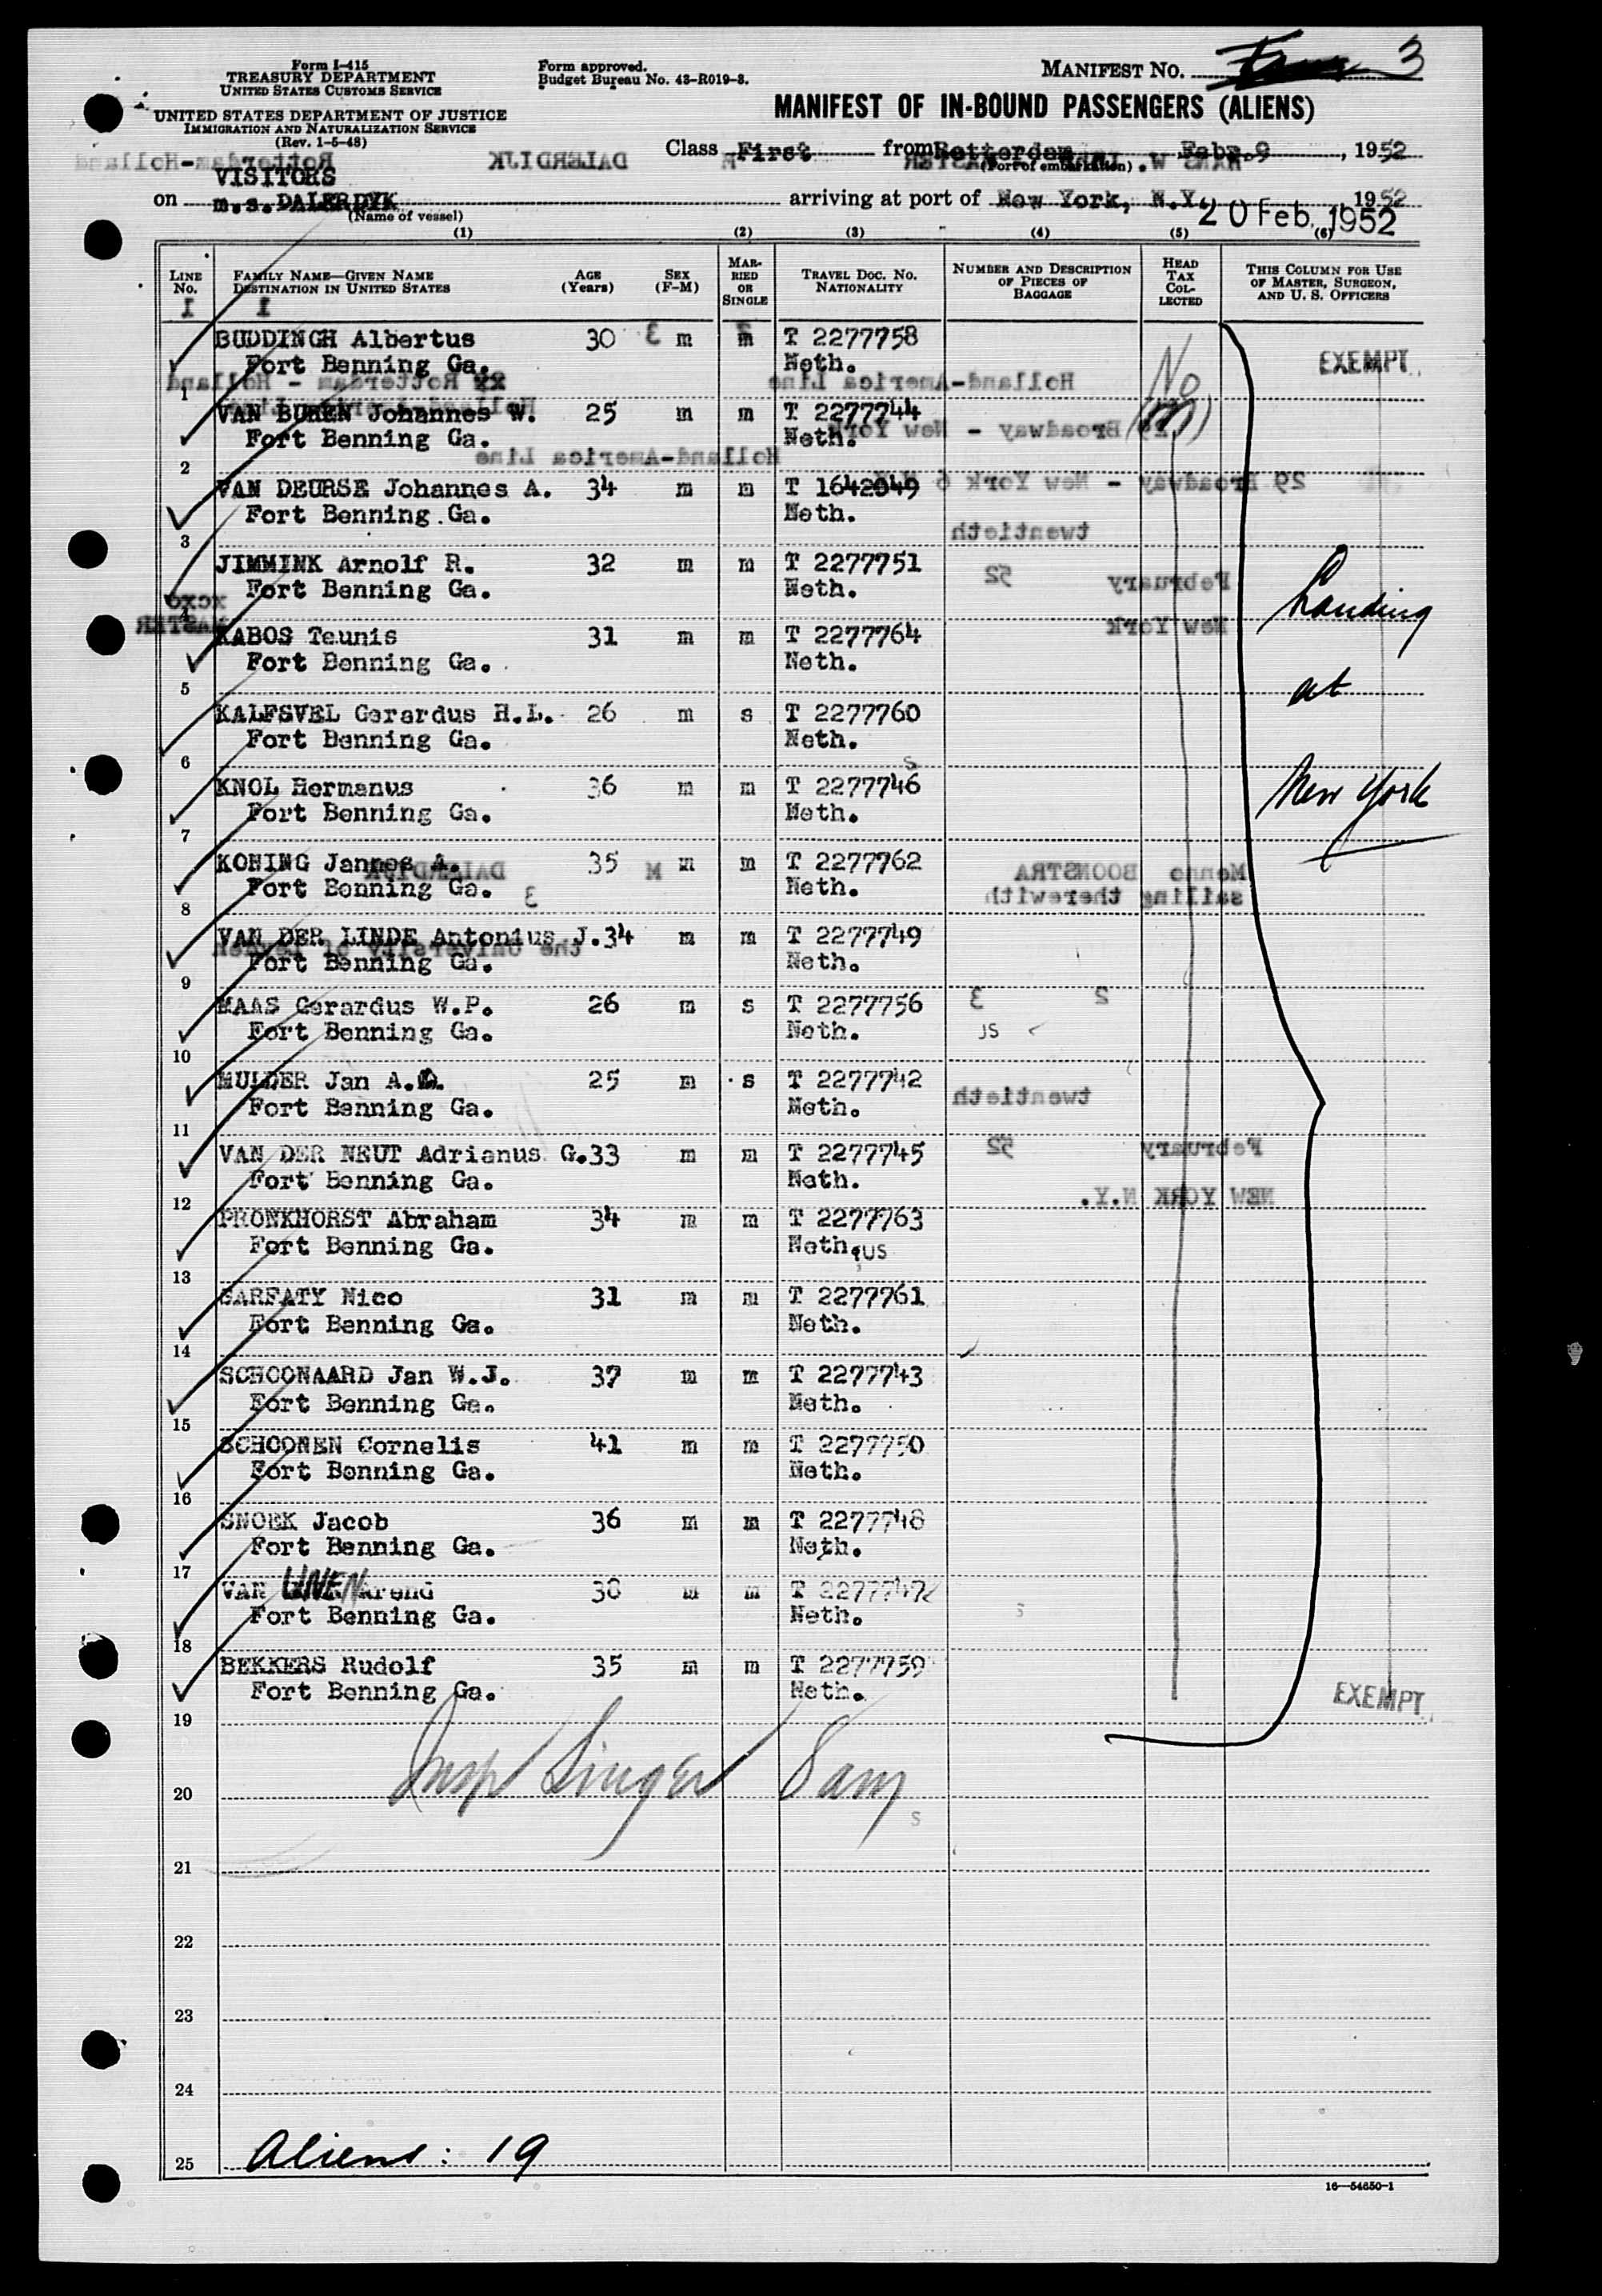 Form I-415
TREASURY DEPARTMENT
UNITED STATES CUSTOMS SERVICE
UNITED STATES DEPARTMENT OF JUSTICE
IMMIGRATION AND NATURALIZATION SERVICE
(Rev. 1-5-48)
Form approved.
Budget Bureau No. 43-R019-3.
MANIFEST NO. 3
MANIFEST OF IN-BOUND PASSENGERS (ALIENS)
Class First from Rotterdam Febr. 9, 1952
(Port of embarkation)
VISITORS
on m.s. DALERDYK arriving at port of New York, N.Y. 1952
(Name of vessel)
20 Feb. 1952
(1) (2) (3) (4) (5) (6)
LINE NO. FAMILY NAME—GIVEN NAME DESTINATION IN UNITED STATES AGE (YEARS) SEX (F-M) MARRIED OR SINGLE TRAVEL DOC. NO. NATIONALITY NUMBER AND DESCRIPTION OF PIECES OF BAGGAGE HEAD TAX COLLECTED THIS COLUMN FOR USE OF MASTER, SURGEON, AND U. S. OFFICERS
BUDDINGH Albertus 30 m m T 2277758 No EXEMPT
1 Fort Benning Ga. Neth.
VAN BUREN Johannes W. 25 m m T 2277744
2 Fort Benning Ga. Neth.
VAN DEURSE Johannes A. 34 m m T 1642049
3 Fort Benning Ga. Neth.
JIMMINK Arnolf R. 32 m m T 2277751
4 Fort Benning Ga. Neth. Landing
KABOS Teunis 31 m m T 2277764
5 Fort Benning Ga. Neth. at
KALFSVEL Gerardus H.L. 26 m s T 2277760
6 Fort Benning Ga. Neth.
KNOL Hermanus 36 m m T 2277746 New York
7 Fort Benning Ga. Neth.
KONING Jannes A. 35 m m T 2277762
8 Fort Benning Ga. Neth.
VAN DER LINDE Antonius J. 34 m m T 2277749
9 Fort Benning Ga. Neth.
MAAS Gerardus W.P. 26 m s T 2277756
10 Fort Benning Ga. Neth.
MULDER Jan A. 25 m s T 2277742
11 Fort Benning Ga. Neth.
VAN DER NEUT Adrianus G. 33 m m T 2277745
12 Fort Benning Ga. Neth.
PRONKHORST Abraham 34 m m T 2277763
13 Fort Benning Ga. Neth.
SARFATY Nico 31 m m T 2277761
14 Fort Benning Ga. Neth.
SCHOONAARD Jan W.J. 37 m m T 2277743
15 Fort Benning Ga. Neth.
SCHOONEN Cornelis 41 m m T 2277750
16 Fort Benning Ga. Neth.
SNOEK Jacob 36 m m T 2277748
17 Fort Benning Ga. Neth.
VAN UNEN Arend 38 m m T 2277747
18 Fort Benning Ga. Neth.
BEKKERS Rudolf 35 m m T 2277759
19 Fort Benning Ga. Neth. EXEMPT
20 Insp Singer 8 am
21
22
23
24
25 Aliens: 19
16—54650-1